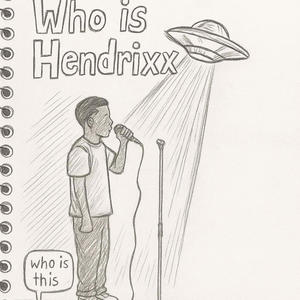 Who is
Hendrixx
who is
this